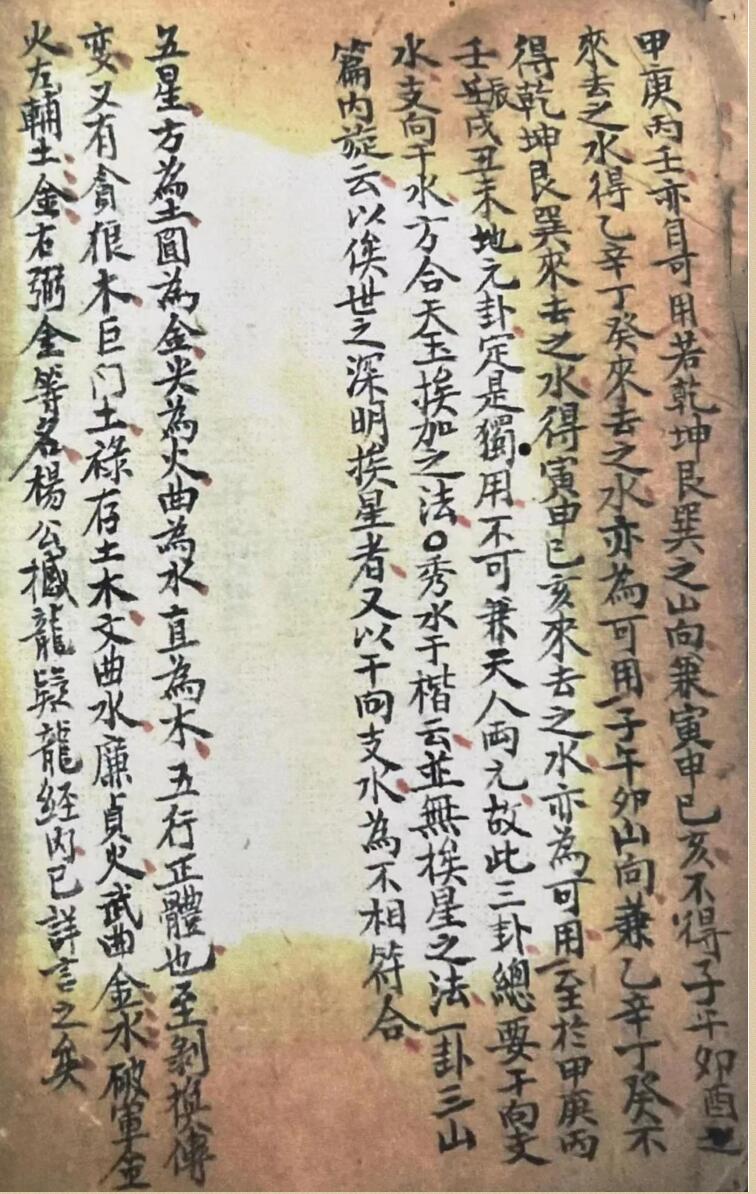 甲庚丙壬亦自可用若乾坤艮巽之山向兼寅申巳亥不得子午卯酉之
來去之水得乙辛丁癸來去之水亦為可用子午卯山向兼乙辛丁癸不
得乾坤艮巽來去之水得寅申巳亥來去之水亦為可用至於甲庚丙
壬辰戌丑未地元卦定是獨用不可兼天人両元故此三卦總要干向支
水支向干水方合天玉挨加之法○秀水于楷云並無挨星之法一卦三山
篇內旋云以俟世之深明挨星者又以干向支水為不相符合
五星方為土圓為金尖為火曲為水直為木五行正體也至剝換傳
変又有貪狼木巨门土祿存土木文曲水廉貞火武曲金水破軍金
火左輔土金右弼金等名楊公撼龍疑龍經內已詳言之矣